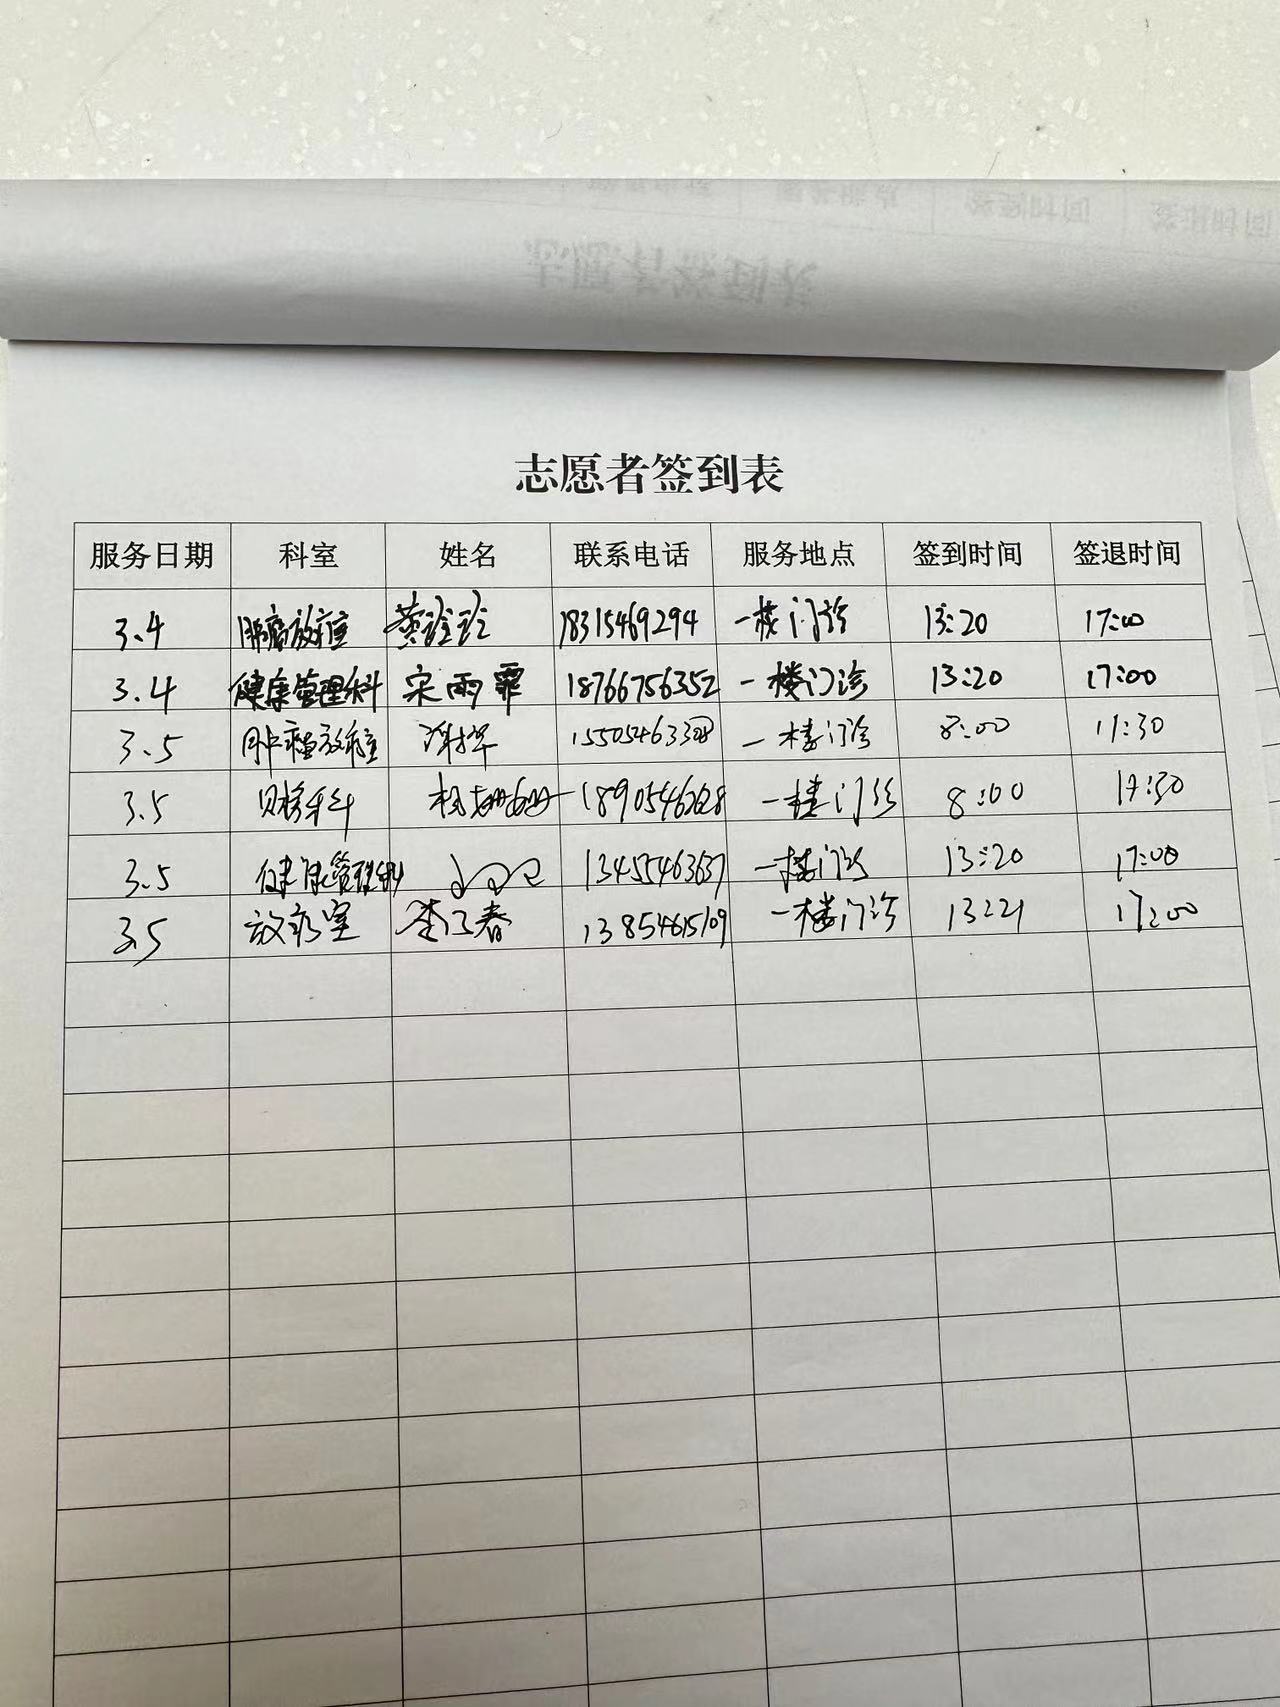 志愿者签到表
服务日期 科室 姓名 联系电话 服务地点 签到时间 签退时间
3.4 肿瘤放疗室 黄珍珍 18315469294 一楼门诊 13:20 17:00
3.4 健康管理科 宋雨霏 18766756352 一楼门诊 13:20 17:00
3.5 肿瘤放疗 一楼门诊 8:00 11:30
3.5 财务科 一楼门诊 8:00
3.5 健康管理科 13455463637 一楼门诊 13:20 17:00
3.5 放疗室 春 13854615109 一楼门诊 13:21 17:00